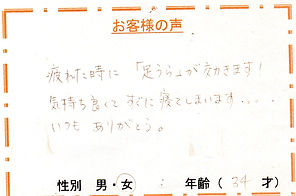 お客様の声
疲れた時に「足うら」が効きます!
気持ち良くて すぐに寝てしまいます....
いつも ありがとう。
性別 男・女 年齢( 34 才)